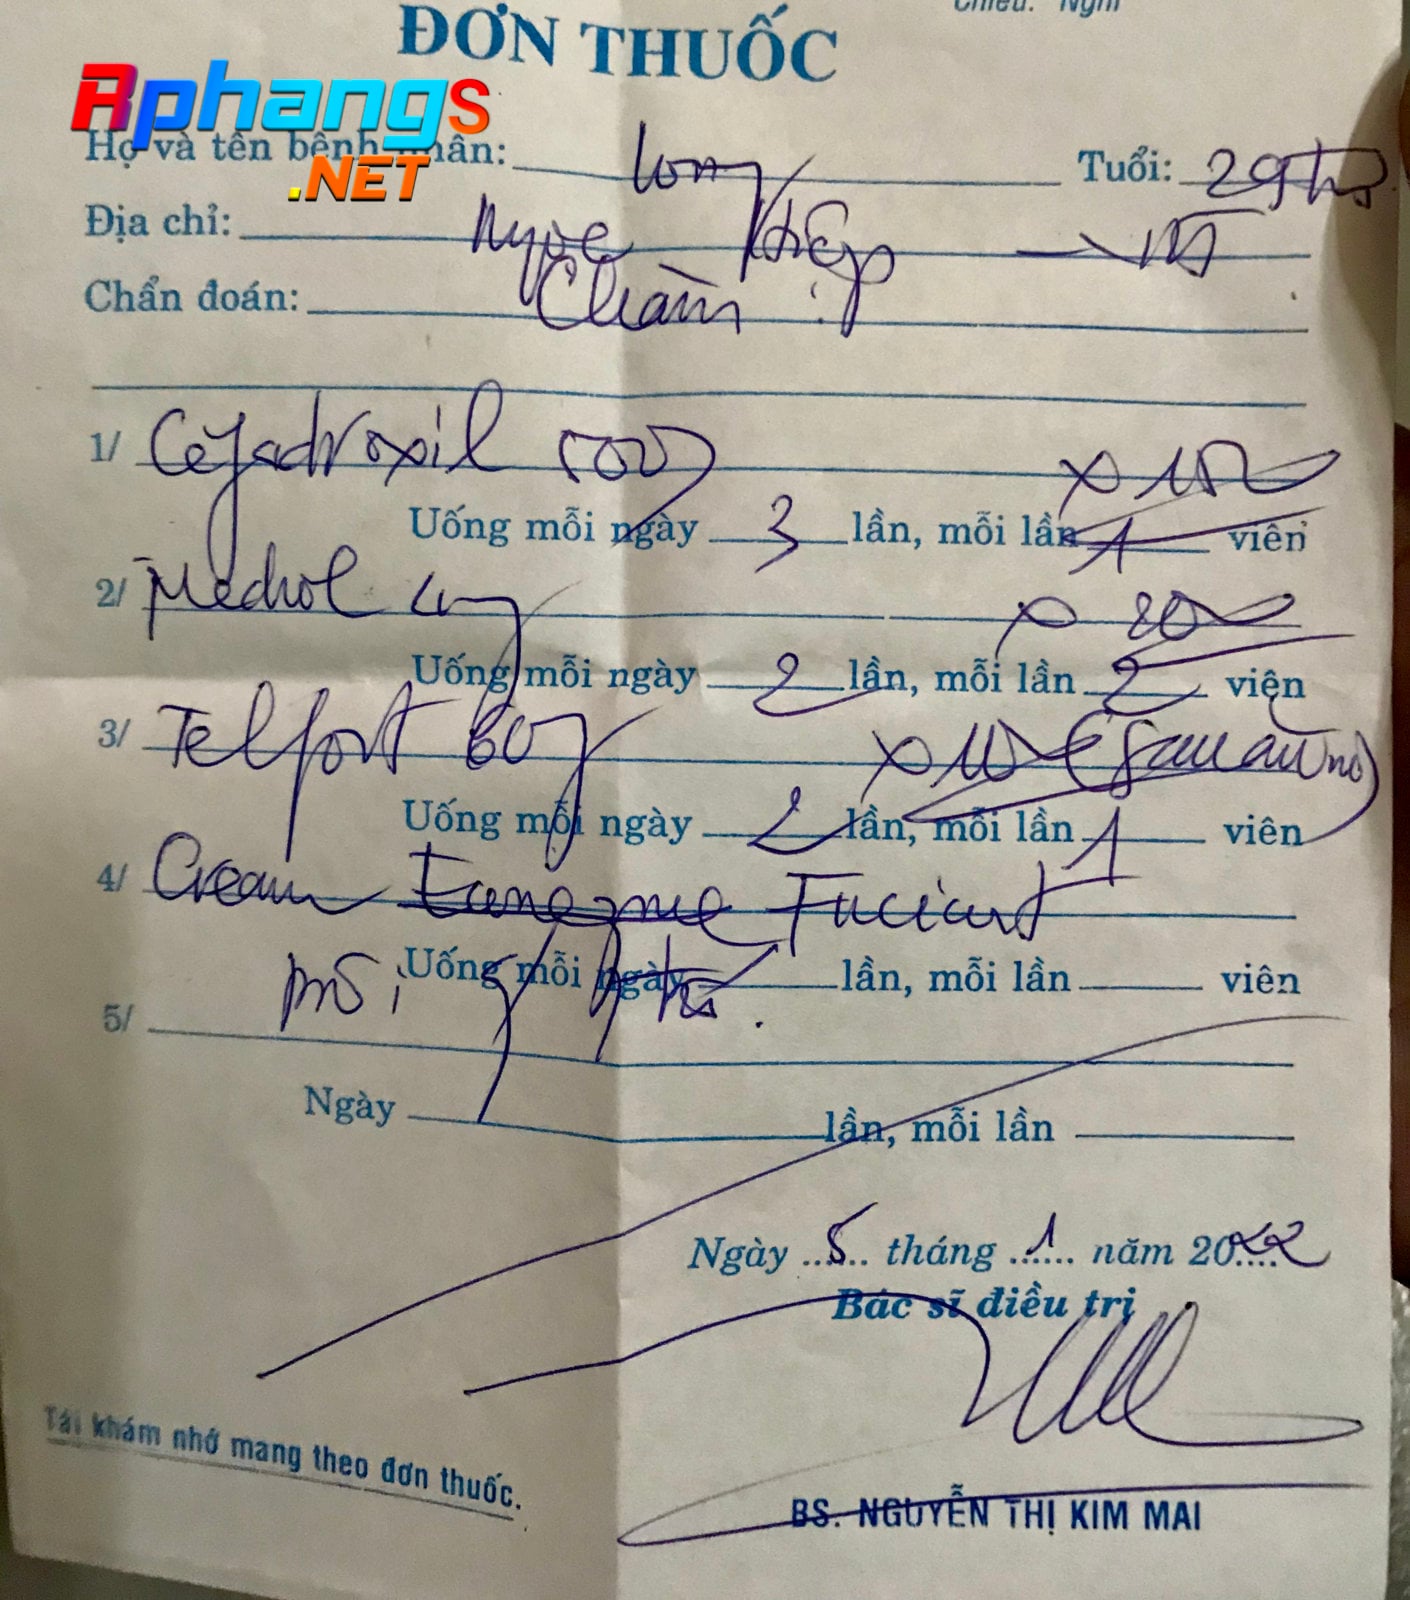 Chiều: Nghỉ
ĐƠN THUỐC
RphangS
.NET
Họ và tên bệnh nhân: Long Tuổi: 29
Địa chỉ: Ngọc Hiệp
Chẩn đoán: Chàm
1/ Cefadroxil 500
Uống mỗi ngày 3 lần, mỗi lần 1 viên
2/ Medrol 4mg x 20
Uống mỗi ngày 2 lần, mỗi lần 2 viên
3/ Telfort 60 x 10 (sau ăn no)
Uống mỗi ngày 2 lần, mỗi lần 1 viên
4/ Cream Fucicort
Uống mỗi ngày lần, mỗi lần viên
5/
Ngày lần, mỗi lần
Ngày 5 tháng 1 năm 2022
Bác sĩ điều trị
Tái khám nhớ mang theo đơn thuốc.
BS. NGUYỄN THỊ KIM MAI